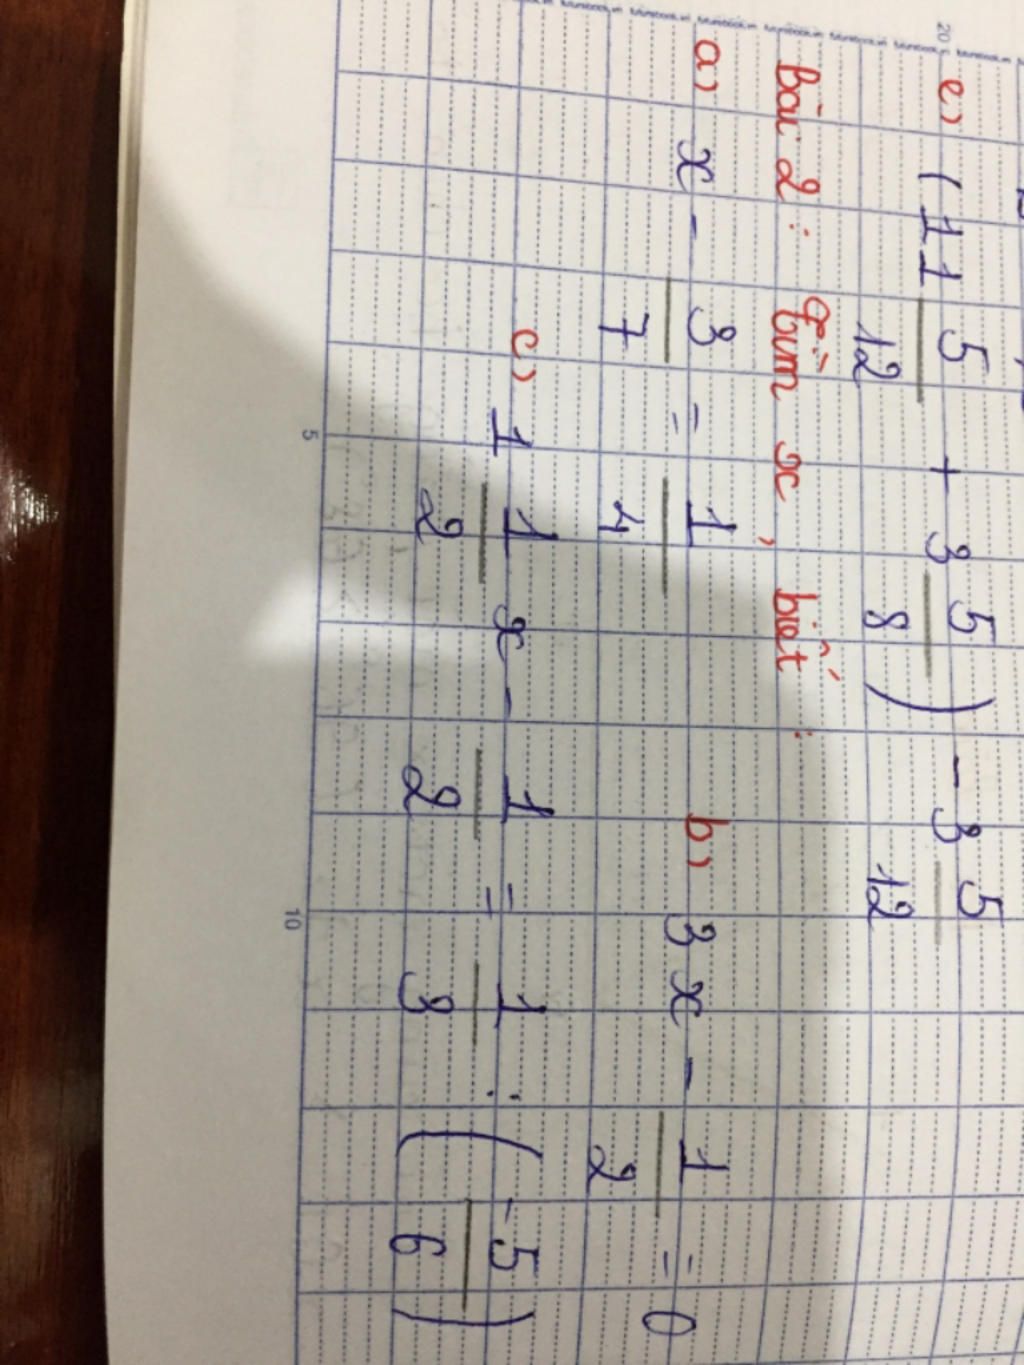 e) (11 5/12 + 3 5/8) - 3 5/12
Bài 2: Tìm x, biết:
a) x - 3/7 = 1/4 b) 3x - 1/2 = 0
c) 1 1/2 x - 1/2 = 1/3 : (-5/6)
20
5
10